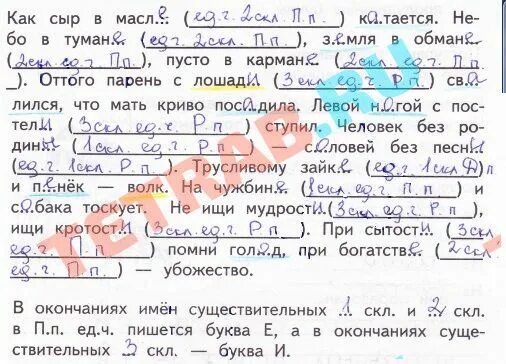 Как сыр в масл..е (ед.ч. 2скл. П.п) к..а..тается. Не-
бо в туман..е (ед.ч. 2скл. П.п.), з..е..мля в обман..е
(2скл. ед.ч. П.п.), пусто в карман..е (2скл. ед.ч. П.п
.). Оттого парень с лошад..и (3скл. ед.ч. Р.п) св..а..
лился, что мать криво пос..а..дила. Левой н..о..гой с пос-
тел..и (3скл. ед.ч. Р.п) ступил. Человек без ро-
дин..ы (1скл. ед.ч. Р.п) — с..о..ловей без песн..и
(ед.ч. 1скл. Р.п). Трусливому зайк..е (ед.ч 1скл Д)п
и п..е..нёк — волк. На чужбин..е (1скл. ед.ч. П.п) и
с..о..бака тоскует. Не ищи мудрост..и (3скл. ед.ч. Р.п),
ищи кротост..и (3скл. ед.ч. Р.п). При сытост..и (3скл
ед.ч. П.п) помни гол..о..д, при богатств..е (2скл.
ед.ч. П.п) — убожество.
В окончаниях имён существительных 1 скл. и 2 скл.
в П.п. ед.ч. пишется буква Е, а в окончаниях суще-
ствительных 3 скл. — буква И.
TETRAB.RU